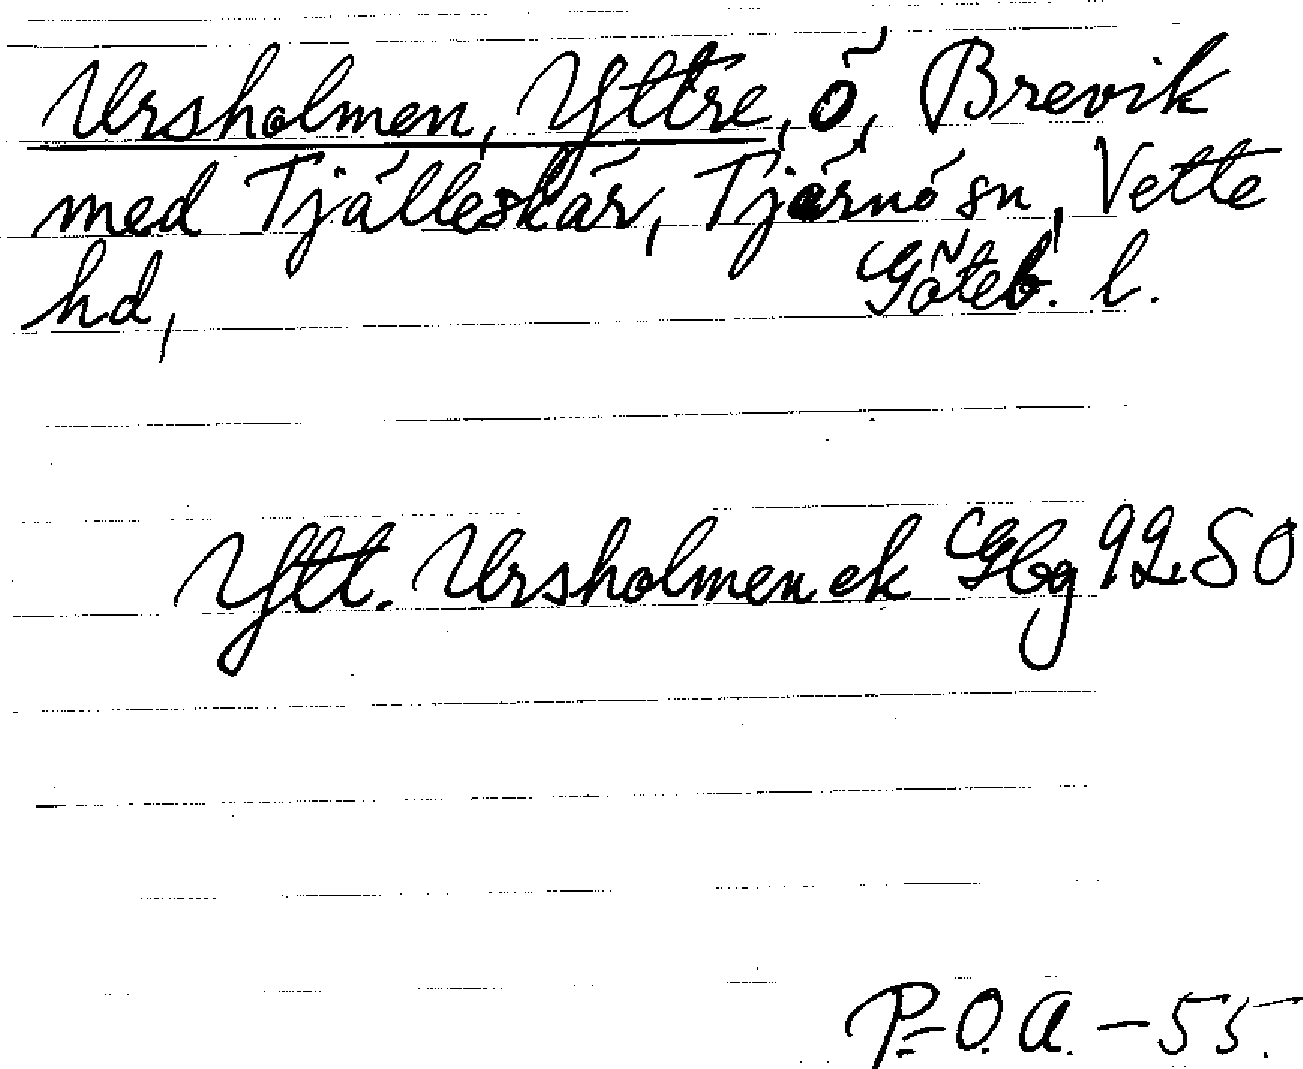 Ursholmen, Yttre, ö, Brevik
med Tjälleskär, Tjärnö sn, Vette
hd, Göteb. l.
Ytt. Ursholmen ek Gbg 92.50
P-O.A. - 55.